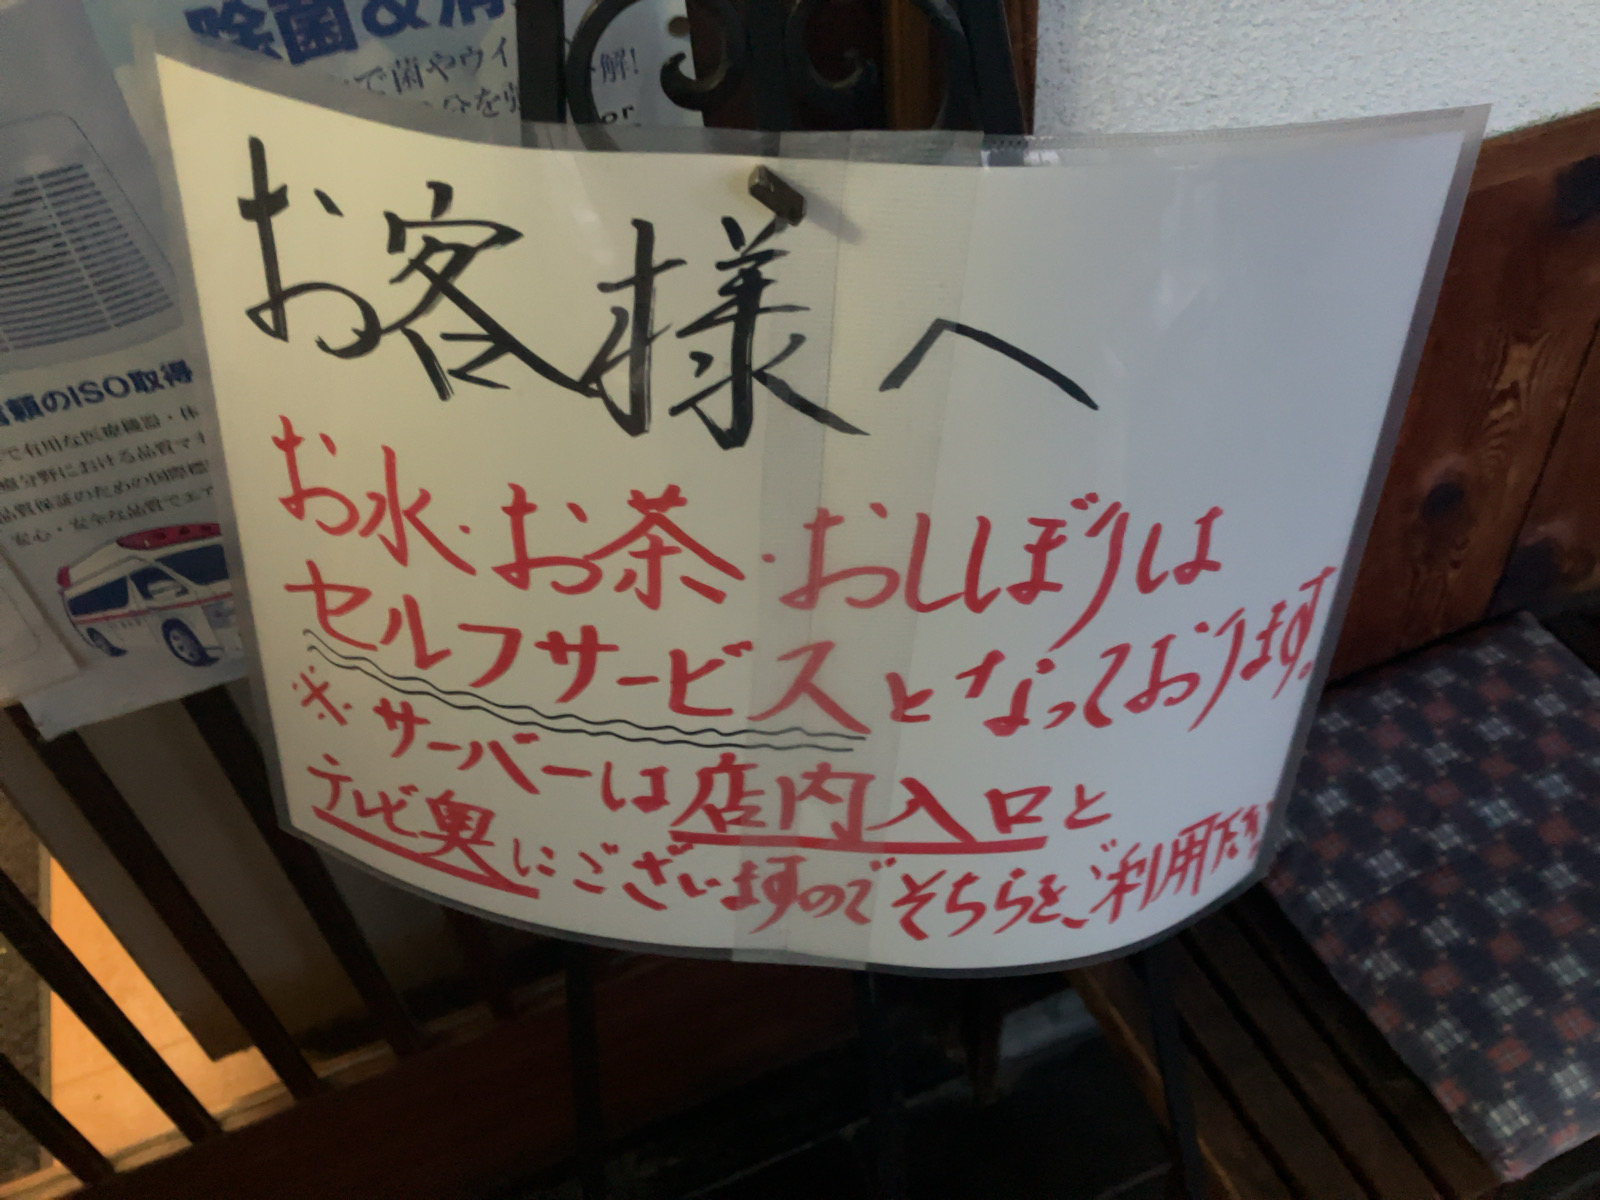 除菌&消
で菌やウイ
解!
分を
or
お客様へ
お水・お茶・おしぼりは
セルフサービスとなっております。
※サーバーは店内入口と
テレビ奥にございますのでそちらを、ご利用下さい
頼のISO取得
で有用な医療機器・体
分野における品質マネ
品質保証のための国際標
安心・安全な品質でエア